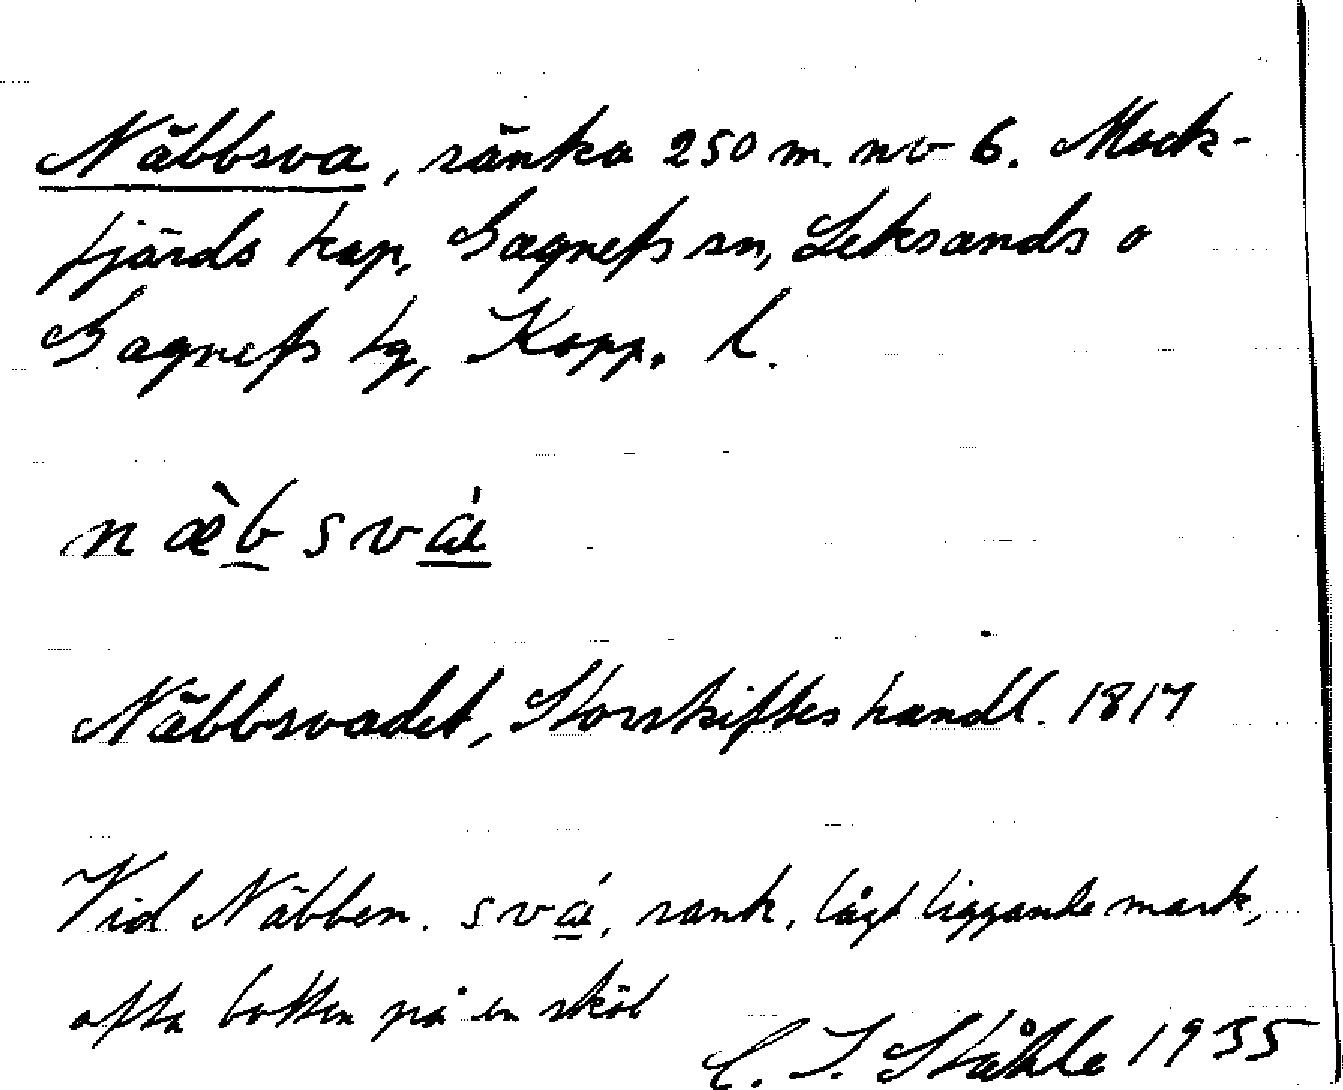 Näbbsva, sänka 250 m. nv 6. Mock-
fjärds kap, Gagnefs sn, Leksands o
Gagnefs tg, Kopp. l.
næ̀b svá
Näbbsvadet, Storskifteshandl. 1817
Vid Näbben. svá, sank, lågt liggande mark,
ofta botten på en
C. I. Ståhle 1935